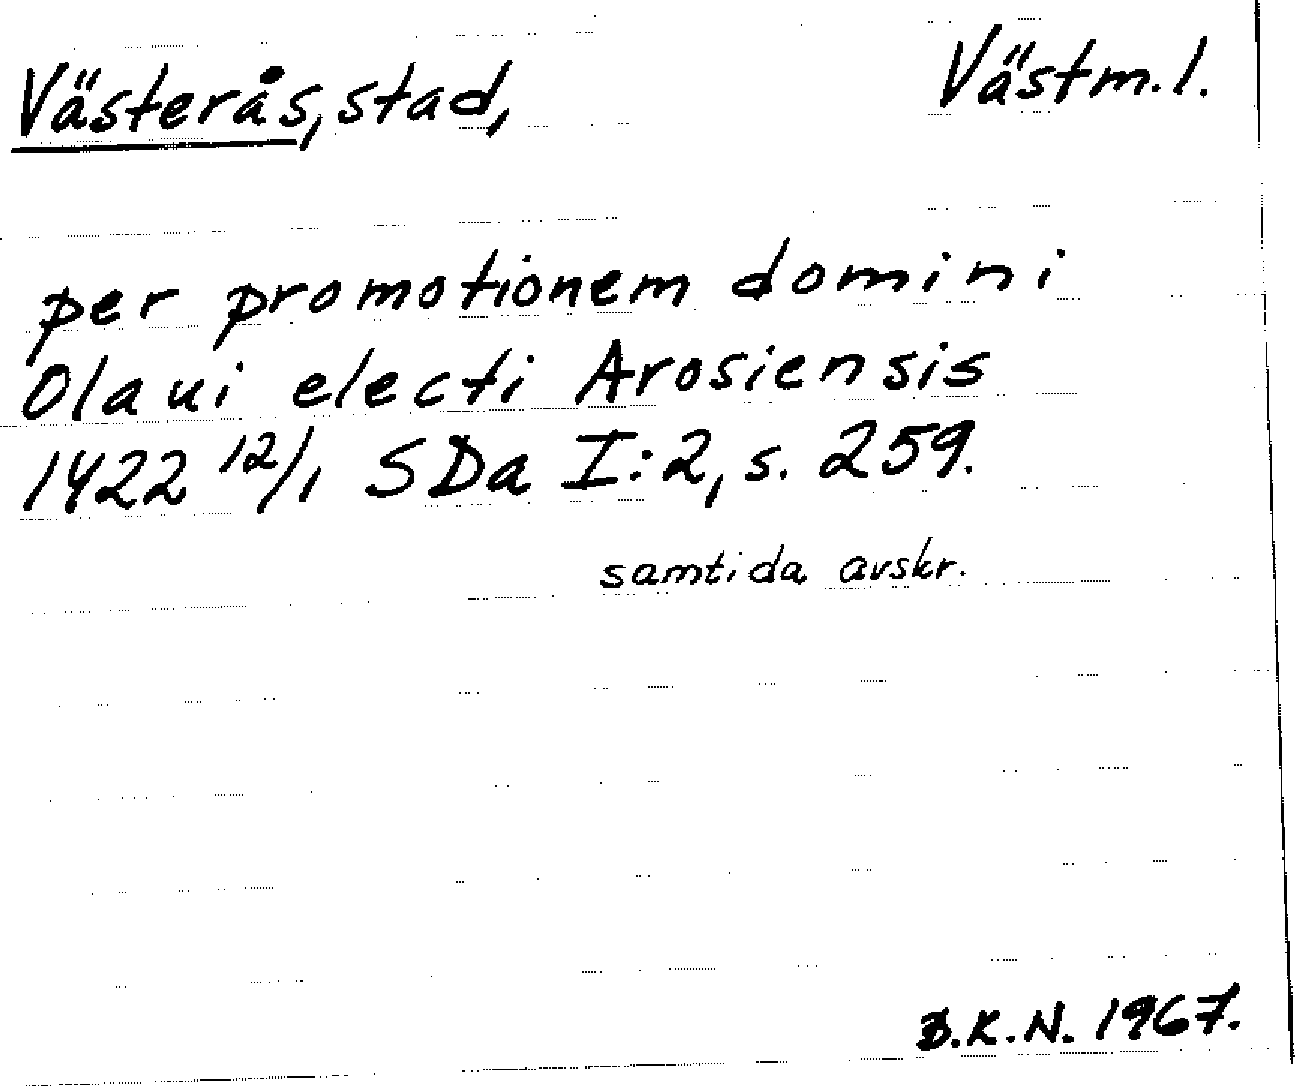 Västerås, stad, Västm.l.
per promotionem domini
Olaui electi Arosiensis
1422 12/1 SDa I:2, s. 259.
samtida avskr.
B.K.N. 1967.